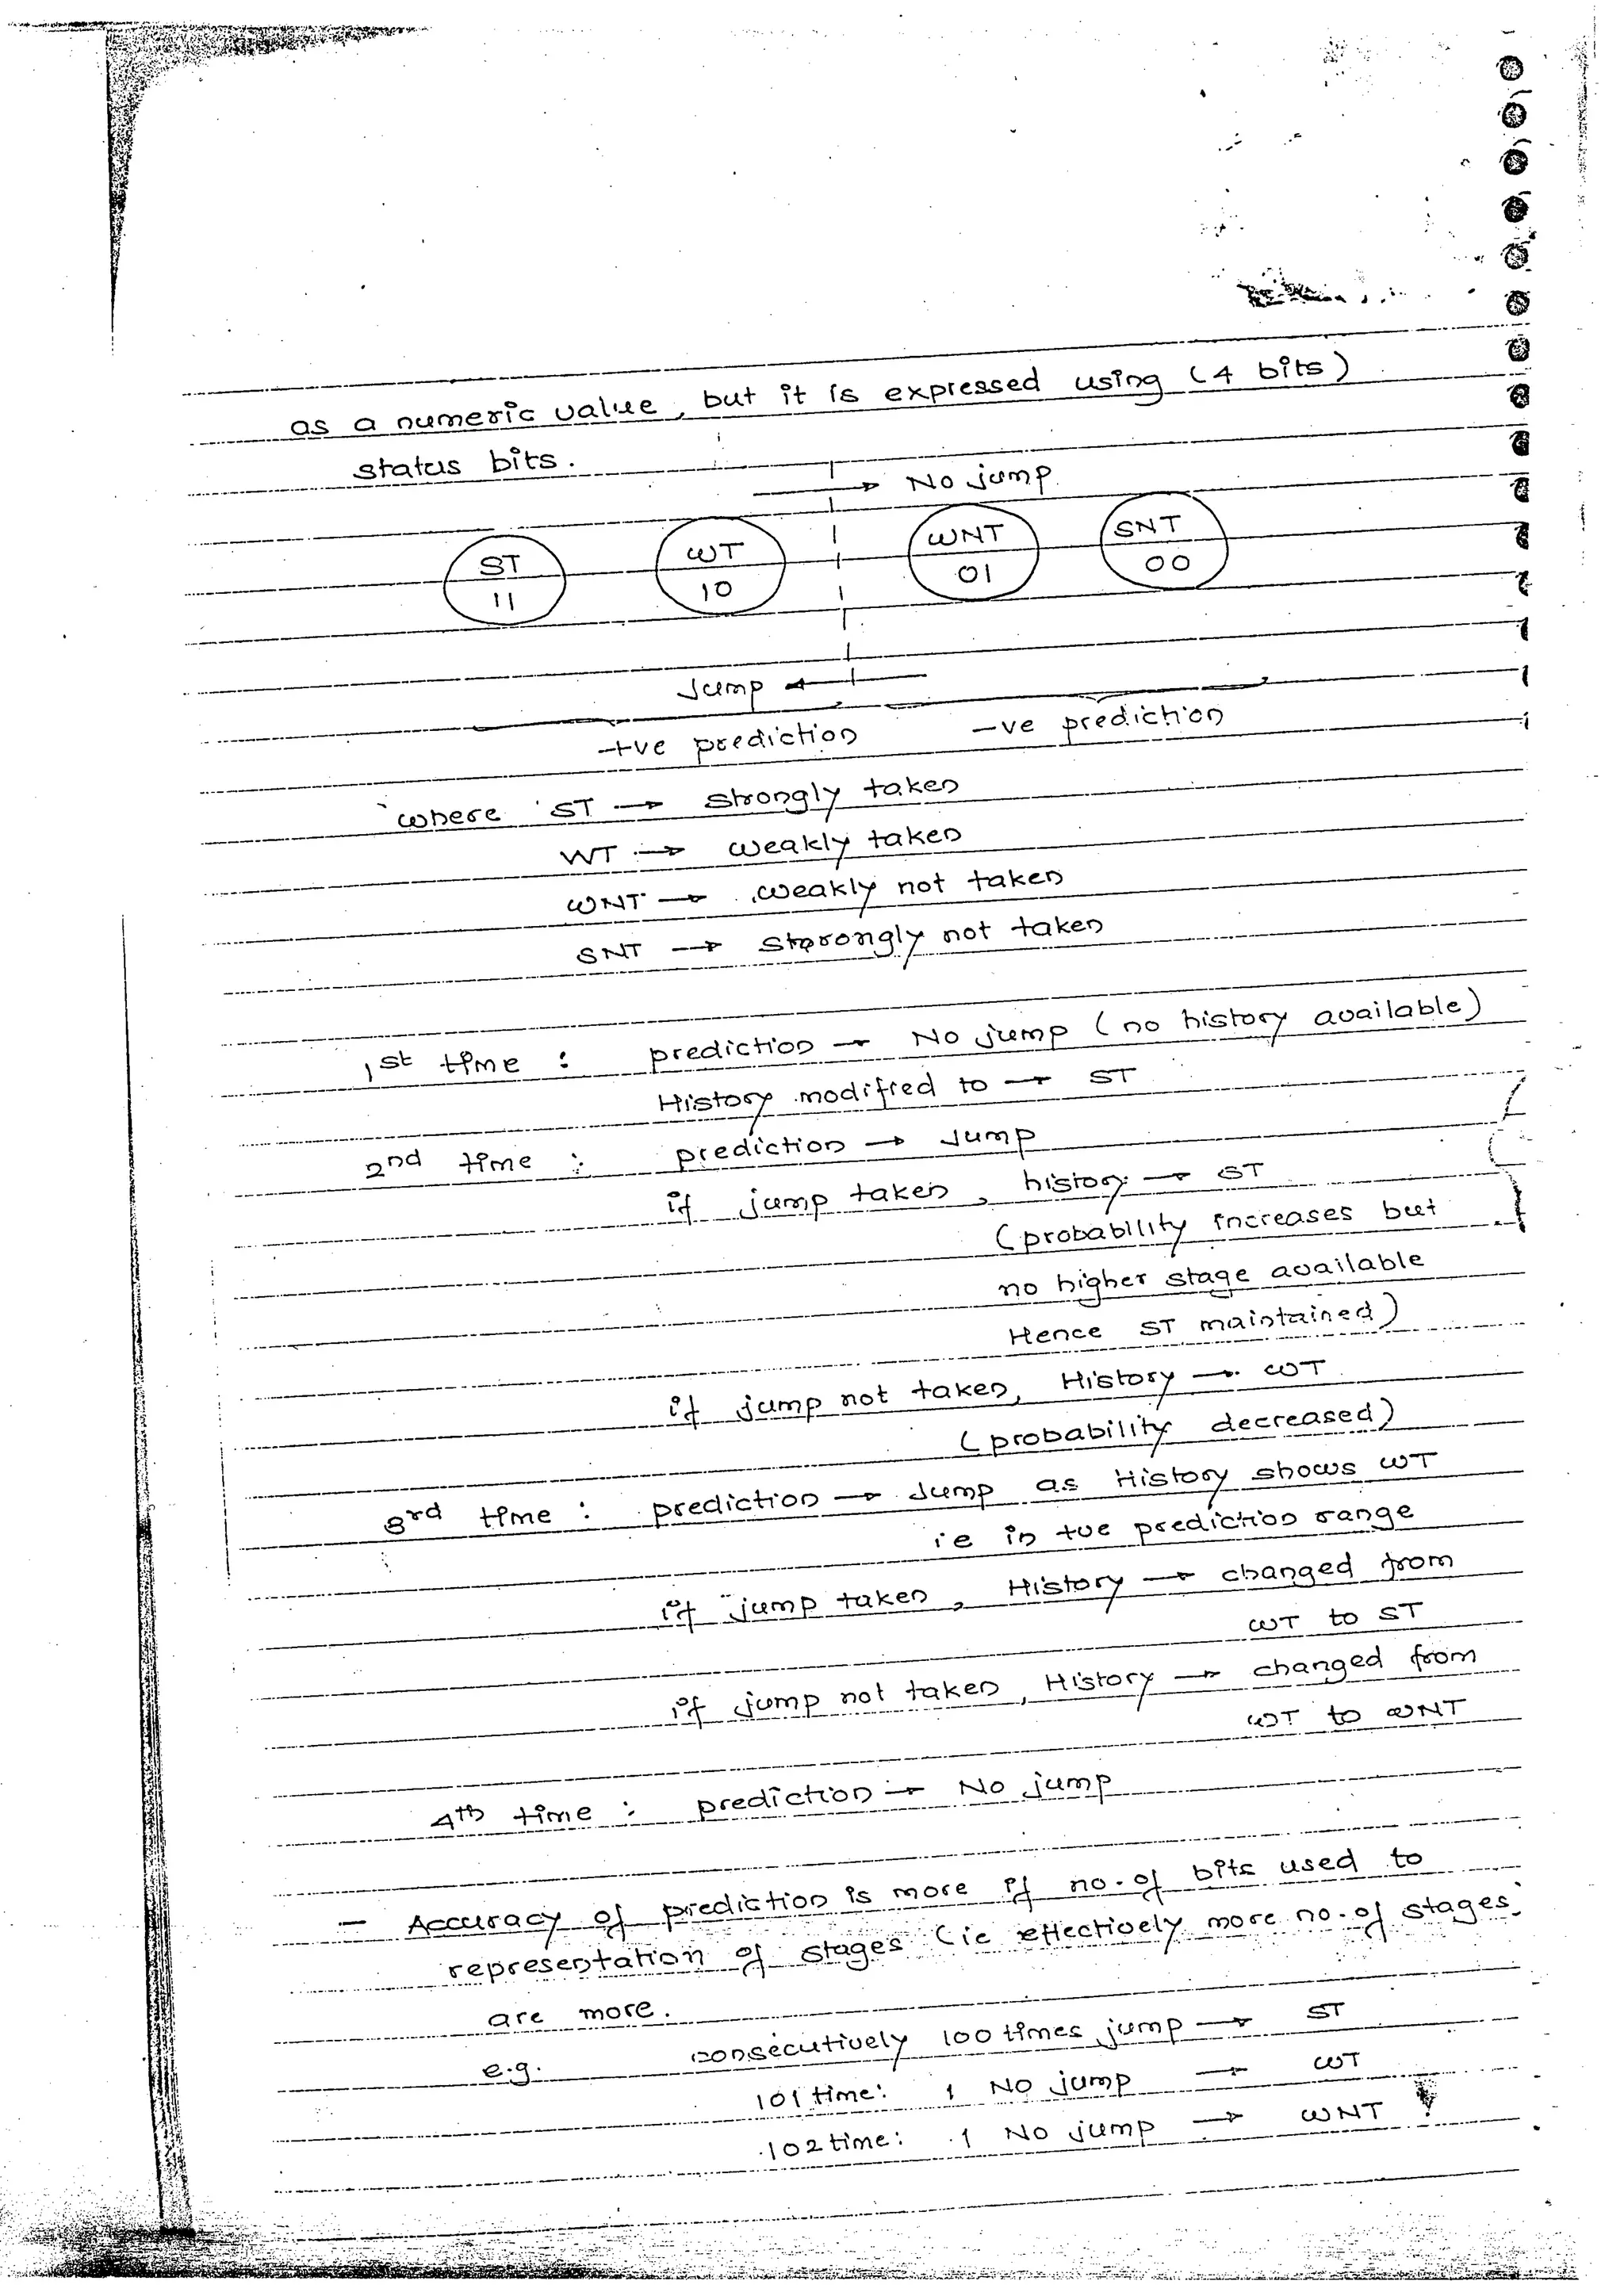 as a numeric value, but it is expressed using (4 bits)
status bits.
→ No jump
ST WT WNT SNT
11 10 01 00
Jump ←
+ve prediction -ve prediction
where ST → strongly taken
WT → weakly taken
WNT → weakly not taken
SNT → strongly not taken
1st time : prediction → No jump (no history available)
History modified to → ST
2nd time : prediction → Jump
if jump taken, history → ST
(probability increases but
no higher stage available
Hence ST maintained)
if jump not taken, History → WT
(probability decreased)
3rd time : prediction → Jump as History shows WT
ie in +ve prediction range
if jump taken, History → changed from
WT to ST
if jump not taken, History → changed from
WT to WNT
4th time : prediction → No jump
- Accuracy of prediction is more if no. of bits used to
representation of stages (ie effectively more no. of stages.
are more.
e.g. consecutively 100 times jump → ST
101 time: 1 No jump → WT
102 time: 1 No jump → WNT